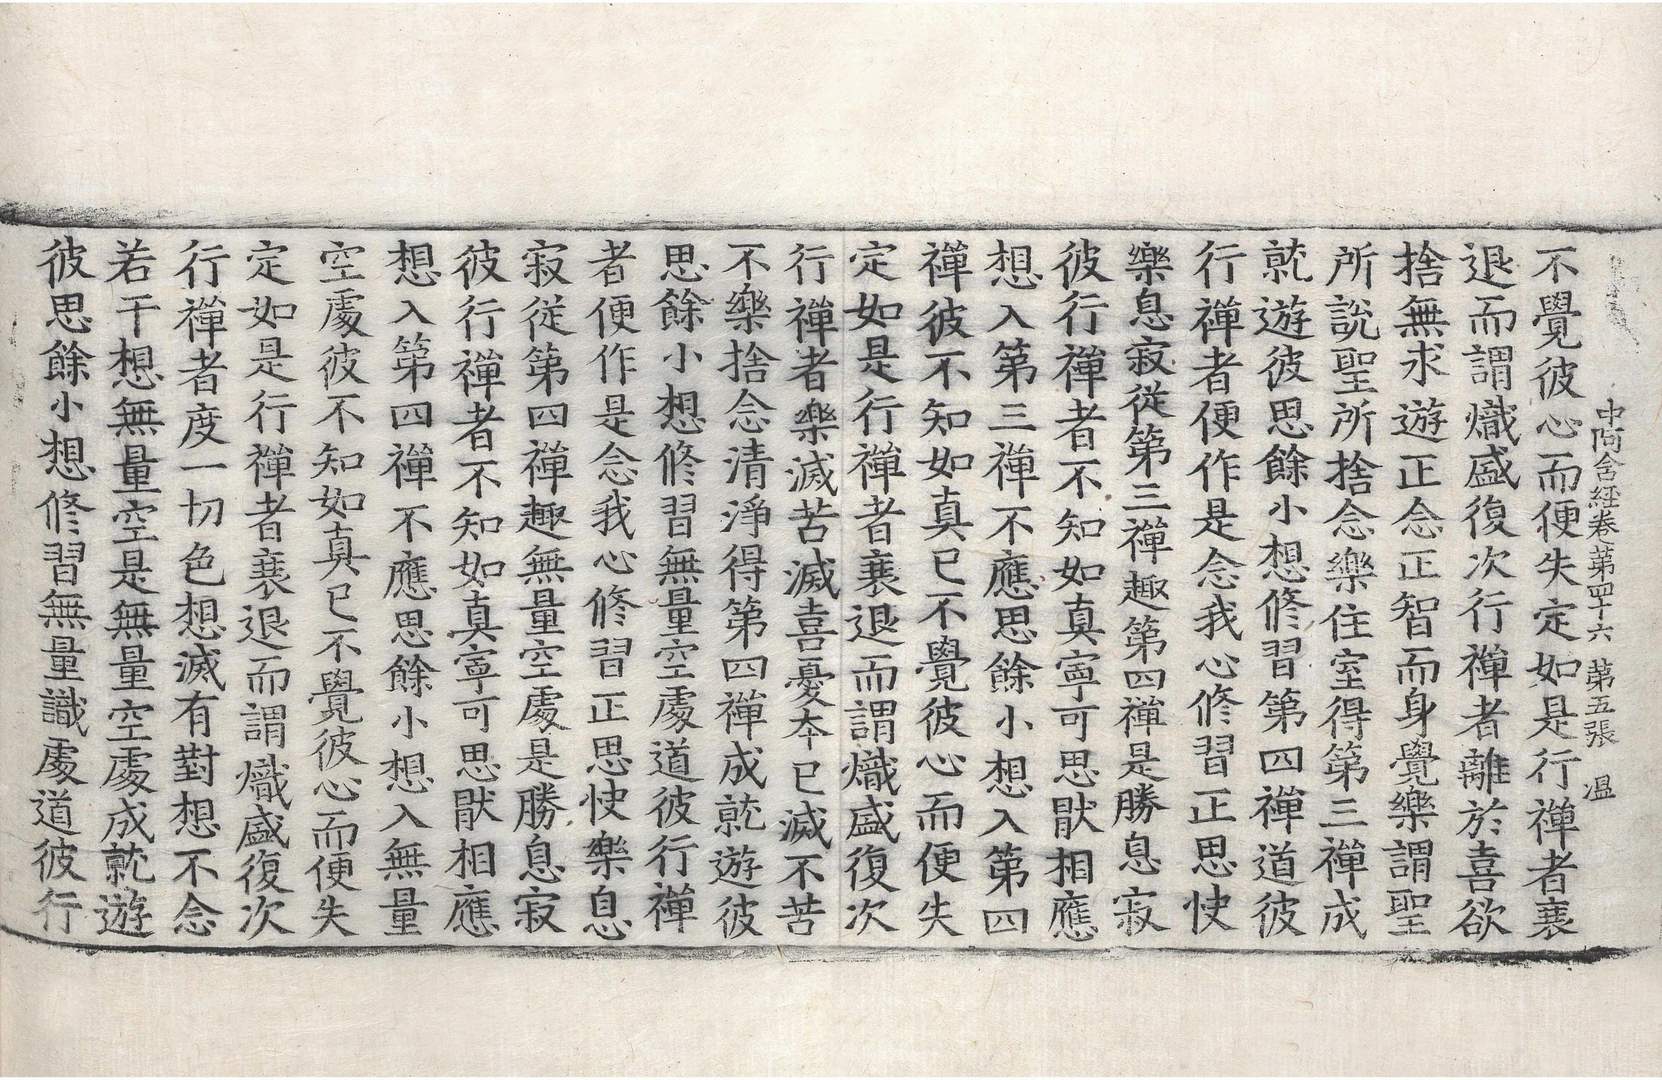 中阿含經卷第四十六 第五張 温
不覺彼心而便失定如是行禪者衰
退而謂熾盛復次行禪者離於喜欲
捨無求遊正念正智而身覺樂謂聖
所說聖所捨念樂住室得第三禪成
就遊彼思餘小想修習第四禪道彼
行禪者便作是念我心修習正思快
樂息寂從第三禪趣第四禪是勝息寂
彼行禪者不知如真寧可思猒相應
想入第三禪不應思餘小想入第四
禪彼不知如真已不覺彼心而便失
定如是行禪者衰退而謂熾盛復次
行禪者樂滅苦滅喜憂本已滅不苦
不樂捨念清淨得第四禪成就遊彼
思餘小想修習無量空處道彼行禪
者便作是念我心修習正思快樂息
寂從第四禪趣無量空處是勝息寂
彼行禪者不知如真寧可思猒相應
想入第四禪不應思餘小想入無量
空處彼不知如真已不覺彼心而便失
定如是行禪者衰退而謂熾盛復次
行禪者度一切色想滅有對想不念
若干想無量空是無量空處成就遊
彼思餘小想修習無量識處道彼行